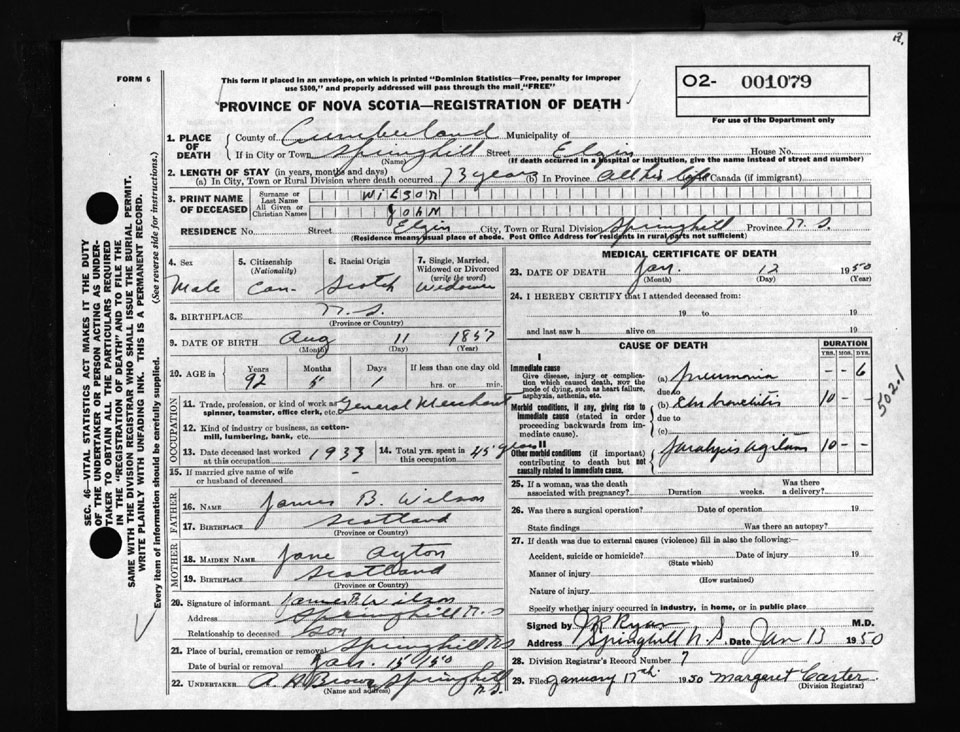 R.
FORM 6
This form if placed in an envelope, on which is printed "Dominion Statistics—Free, penalty for improper
use $300," and properly addressed will pass through the mail "FREE"
PROVINCE OF NOVA SCOTIA—REGISTRATION OF DEATH
02- 001079
For use of the Department only
1. PLACE OF DEATH County of Cumberland Municipality of
If in City or Town Springhill Street Elgin House No.
(Name) (If death occurred in a hospital or institution, give the name instead of street and number)
2. LENGTH OF STAY (in years, months and days)
(a) In City, Town or Rural Division where death occurred 73 years (b) In Province All his life Canada (if immigrant)
3. PRINT NAME OF DECEASED Surname or Last Name WILSON
All Given or Christian Names JOHN
RESIDENCE No. Street Elgin City, Town or Rural Division Springhill Province N.S.
(Residence means usual place of abode. Post Office Address for residents in rural parts not sufficient)
4. Sex Male
5. Citizenship (Nationality) Can.
6. Racial Origin Scotch
7. Single, Married, Widowed or Divorced (write the word) Widower
8. BIRTHPLACE N.S.
(Province or Country)
9. DATE OF BIRTH Aug 11 1857
(Month) (Day) (Year)
10. AGE in Years 92 Months 5 Days 1 If less than one day old hrs. or min.
OCCUPATION
11. Trade, profession, or kind of work as spinner, teamster, office clerk, etc. General Merchant
12. Kind of industry or business, as cotton-mill, lumbering, bank, etc.
13. Date deceased last worked at this occupation 1933
14. Total yrs. spent in this occupation 45 years
15. If married give name of wife or husband of deceased -
FATHER
16. NAME James B. Wilson
17. BIRTHPLACE Scotland
(Province or Country)
MOTHER
18. MAIDEN NAME Jane Ayton
19. BIRTHPLACE Scotland
(Province or Country)
20. Signature of informant James Wilson
Address Springhill N.S
Relationship to deceased Son
21. Place of burial, cremation or removal Springhill NS
Date of burial or removal Jan. 15/50
22. UNDERTAKER A. H Brown Springhill N.S.
(Name and address)
MEDICAL CERTIFICATE OF DEATH
23. DATE OF DEATH Jan. 12 1950
(Month) (Day) (Year)
24. I HEREBY CERTIFY that I attended deceased from:
19 to 19
and last saw h alive on 19
CAUSE OF DEATH DURATION
YRS. MOS. DYS.
I
Immediate cause
Give disease, injury or complication which caused death, NOT the mode of dying, such as heart failure, asphyxia, asthenia, etc.
(a) pneumonia - - 6
due to
Morbid conditions, if any, giving rise to immediate cause (stated in order proceeding backwards from immediate cause).
(b) Chr bronchitis 10 - -
due to
(c)
II
Other morbid conditions (if important) contributing to death but not causally related to immediate cause.
paralysis agitans 10 - -
502.1
25. If a woman, was the death associated with pregnancy? Duration weeks. Was there a delivery?
26. Was there a surgical operation? Date of operation 19
State findings Was there an autopsy?
27. If death was due to external causes (violence) fill in also the following:
Accident, suicide or homicide? Date of injury 19
(State which)
Manner of injury
(How sustained)
Nature of injury
Specify whether injury occurred in industry, in home, or in public place
Signed by J R Ryan M.D.
Address Springhill N.S. Date Jan 13 1950
28. Division Registrar's Record Number 7
29. Filed January 17th 1950 Margaret Carter
(Division Registrar)
SEC. 46—VITAL STATISTICS ACT MAKES IT THE DUTY
OF THE UNDERTAKER OR PERSON ACTING AS UNDER-
TAKER TO OBTAIN ALL THE PARTICULARS REQUIRED
IN THE "REGISTRATION OF DEATH" AND TO FILE THE
SAME WITH THE DIVISION REGISTRAR WHO SHALL ISSUE THE BURIAL PERMIT.
WRITE PLAINLY WITH UNFADING INK. THIS IS A PERMANENT RECORD.
Every item of information should be carefully supplied. (See reverse side for instructions.)